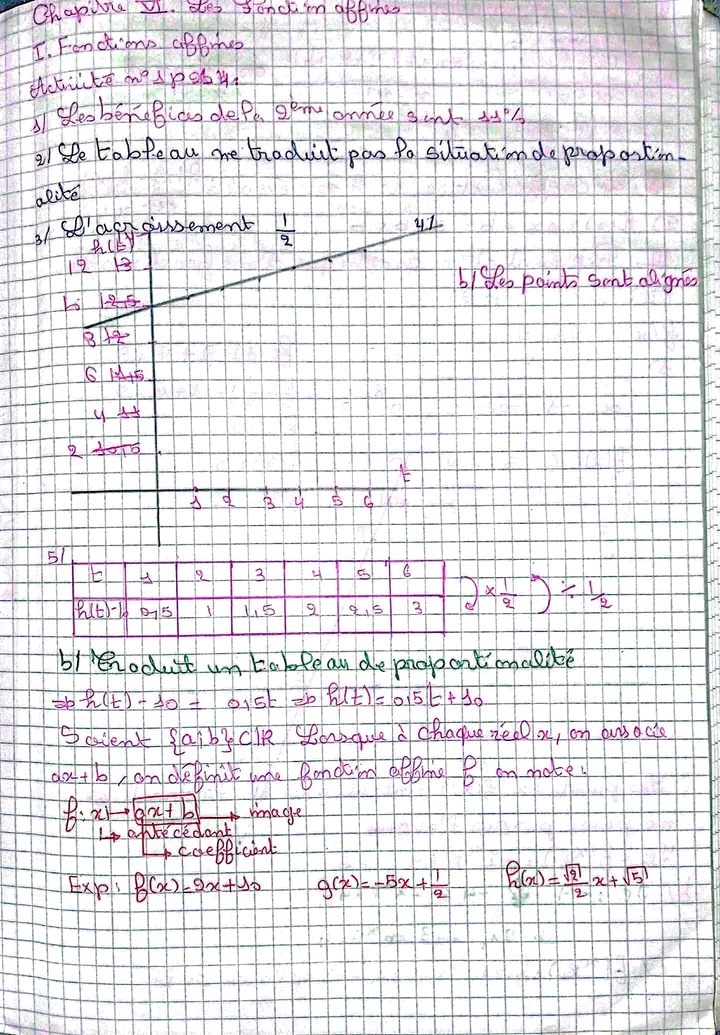 Chapitre VI. Les Fonction affines
I. Fonctions affines
Activité n°1 p 264.
1/ Les bénéfices de la 2ème année sont 11%
2/ Le tableau ne traduit pas la situation de proportion-
alité
3/ L'accroissement 1/2
4/
h(t)
12 13
12,5
b/ Les points sont alignés
8 12
6 11,5
4 11
2 10,5
t
1 2 3 4 5 6
5/
t 1 2 3 4 5 6
h(t)-1 0,5 1 1,5 2 2,5 3 × 1/2 ÷ 1/2
b/ Traduit un tableau de proportionalité
⇒ h(t) - 10 = 0,5t ⇒ h(t) = 0,5t + 10
Soient {a;b} ⊂ IR Lorsque à chaque réel x, on associe
ax+b, on définit une fonction affine f on note:
f: x ↦ ax+b → image
↳ antécédant
↳ coefficient
Exp: f(x) = 2x+10 g(x) = -5x + 1/2 h(x) = √2/2 x + √5